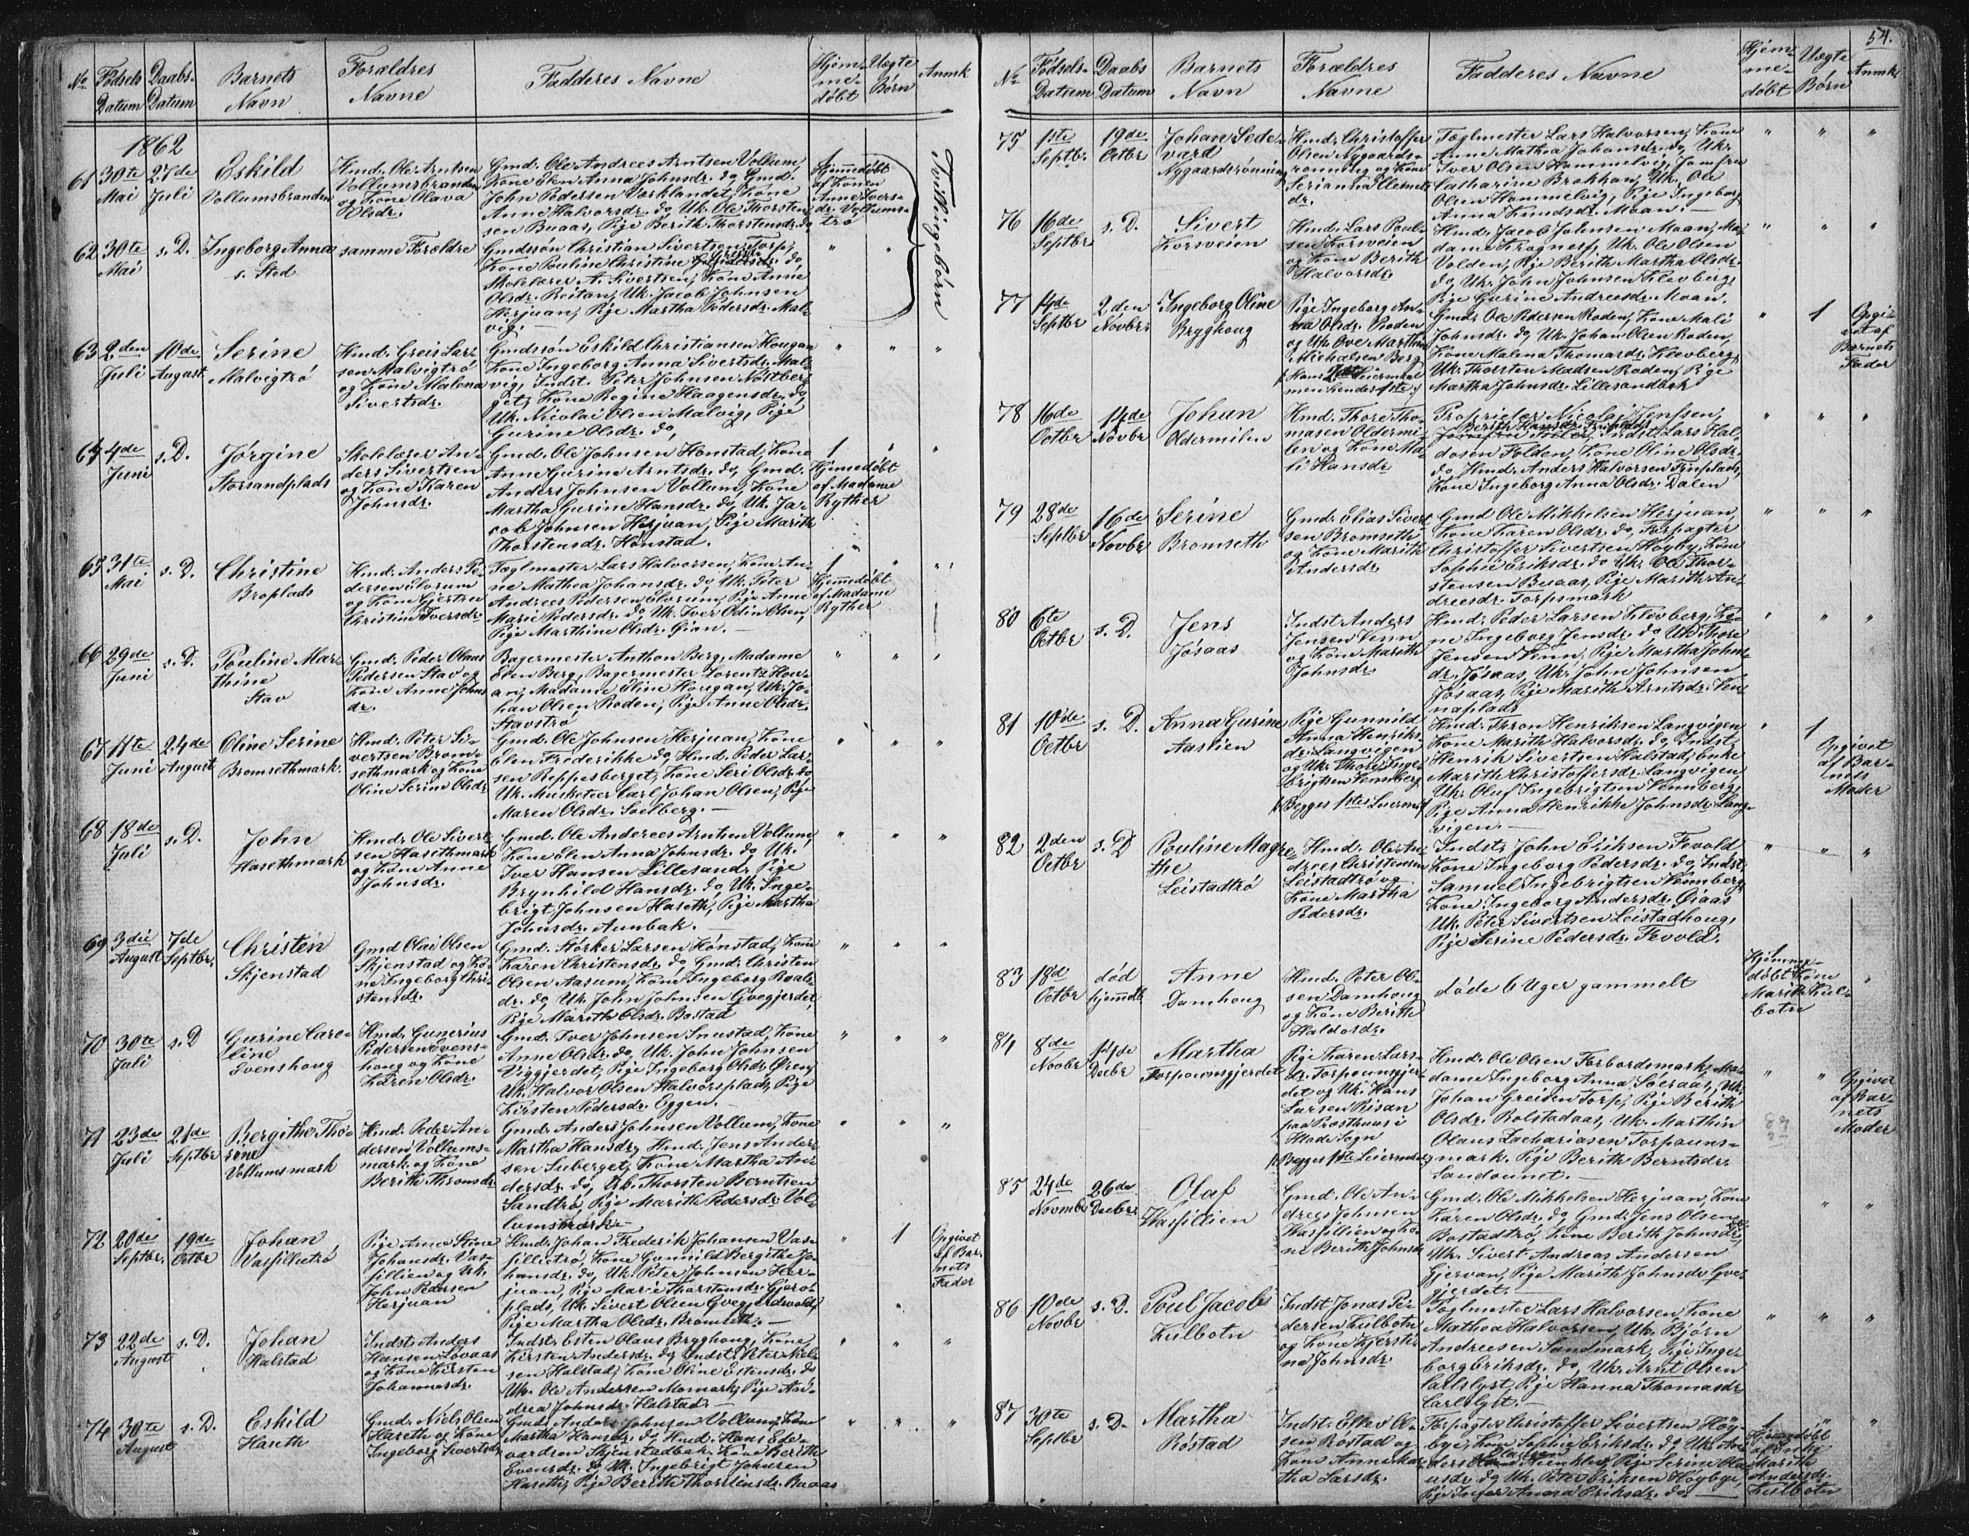 No
Fødsels Datum
Daabs Datum
Barnets Navn
Forældres Navne
Fadderes Navne
Hjemmedøbt
Uægte Børn
Anmk
1862
61
30te Mai
27de Juli
Eskild
Vollumsbranden
Hmd. Ole Arntsen
Vollumsbranden
og Kone Olava
Olsdr.
Gmd. Ole Andreas Arntsen Vollum,
Kone Elen Anna Johnsdr. do, Gmd.
John Pedersen Værklandet, Kone
Anne Halvorsdr. do, Uk. Ole Thorsten
sen Buaas, Pige Berith Thorstensdr. do
1
Hjemmedøbt
af Konen
Anne Ivers-
dr. Vollums-
trø
Tvillingebørn
62
30te Mai
s. D.
Ingeborg Anna
s. Sted
samme Forældre
Gmdssøn Christian Sivertsen Torp,
Kone Pauline Christine
Skolelærer A. Sivertsen, Kone Anne
Olsdr. Røitan, Uk. Jacob Johnsen
Herjuan, Pige Martha Pedersdr. Mal-
vig. —
63
2den Juli
10de August
Serine
Malvigtrø
Hmd. Greis Lar-
sen Malvigtrø
og Kone Malena
Sivertsdr.
Gmdssøn Eskild Christiansen Hougan
Kone Ingeborg Anna Sivertsdr. Mal-
vig, Indst. Peter Johnsen Nøstberg
get, Kone Regine Haagensdr. do
Uk. Nicolai Olsen Malvig, Pige
Gurine Olsdr. do,
64
4de Juni
s. D.
Jørgine
Storsandplads
Skolelærer An-
ders Sivertsen
og Kone Karen
Johnsdr.
Gmd. Ole Johnsen Hønstad, Kone
Anne Gurine Arntsdr. do, Gmd.
Anders Johnsen Vollum, Kone
Martha Gurine Hansdr. do, Uk. Ja-
cob Johnsen Herjuan, Pige Marith
Thorstensdr. Hønstad.
1
Hjemmedøbt
af Madame
Ryther
65
31te Mai
s. D.
Christine
Broplads
Hmd. Anders Pe-
dersen Storum
og Kone Gjertru
Christine Iversdr.
Teglmester Lars Halvorsen, Kone An-
ne Mathea Johansdr. do, Uk. Peter
Andreas Pedersen Storum, Pige Anne
Marie Pedersdr. do Uk. Iver Odin Olsen,
Pige Marthine Olsdr. Gian. —
1
Hjemmedøbt
af Madame
Ryther
66
29de Juni
s. D.
Pouline Mar-
thine
Stav
Gmd. Peder Olaus
Pedersen Stav og
Kone Anne Johns
dr.
Bagermester Anthon Berg, Madame
Elen Berg, Bagermester Lorentz Hou-
an, Madame Eline Hougan, Uk. Jo-
han Olsen Roden, Pige Anne Olsdr.
Stavstrø
67
11te Juni
24de August
Oline Serine
Bromsethmark.
Hmd. Peter Si-
vertsen Brom-
sethmark og Kone
Oline Serine Olsdr.
Gmd. Ole Johnsen Herjuan, Kone
Elen Frederikke do, Hmd. Peder Lar-
sen Reppesberget, Kone Seri Olsdr. do
Uk. Musketeer Carl Johan Olsen, Pige
Maren Olsdr. Saelberg. —
68
18de Juli
s. D.
John
Hasethmark
Hmd. Ole Sivert
sen Hasethmark
og Kone Anne
Johnsdr.
Gmd. Ole Andreas Arntsen Vollum,
Kone Elen Anna Johnsdr. do, Uk.
Iver Hansen Lillesand, Pige
Brynhild Hansdr. do, Uk. Inge-
brigt Johnsen Haseth, Pige Martha
Johnsdr. Aunbak. —
69
3die August
7de Septbr.
Christen
Skjenstad
Gmd Olai Olsen
Skjenstad og Ko-
ne Ingeborg Chri-
stensdr.
Gmd. Størker Larsen Hønstad, Kone
Karen Christensdr. do Gmd. Christen
Olsen Aasum, Kone Ingeborg Roals-
dr. do, Uk. John Johnsen Grøgjerdet
Pige Marith Olsdr. Bostad
70
30te Juli
s. D
Gurine Care-
line
Svenshoug
Hmd. Gunerius
Pedersen Svens-
houg og Kone
Karen Olsdr.
Gmd. Iver Johnsen Snustad, Kone
Anne Olsdr. do, Uk. John Johnsen
Viggjerdet, Pige Ingeborg Olsdr. Øren,
Uk. Halvor Olsen Halvorsplads, Pige
Kirsten Pedersdr. Eggen. —
71
23de Juli
21de Septbr
Bergithe Tho-
rine
Vollumsmark
Hmd. Peder An-
dersen Vollums-
mark og Kone
Berith Thomsdr
Gmd. Anders Johnsen Vollum, Kone
Martha Hansdr. do, Hmd. Jens Ander-
sen Suberget, Kone Martha An-
dersdr. do, Uk. Thorsten Berntsen
Sandtrø, Pige Marith Pedersdr. Vol-
lumsmark —
72
20de Septbr.
19de Octbr
Johan
Vasfillietrø
Pige Anne Stine
Johansdr. Vas-
fillien og Uk.
John Pedersen
Herjuan
Hmd. Johan Frederik Johansen Vas-
fillietrø, Kone Gunnild Bergithe Jo-
hansdr. do, Uk. Peter Johnsen Her-
juan, Pige Marie Thorstensdr. Gjerø-
plads, Uk. Sivert Olsen Grøgjerdsvold,
Pige Martha Olsdr. Bromseth. —
1
Opgivet
af Bar-
nets
Fader
73
22de August
s. D.
Johan
Halstad
Indst. Anders
Hansen Løvaas
og Kone Kirsten
Johannesdr.
Indst. Esten Olaus Bryghoug, Kone
Kirsten Andersdr. do, Indst. Peter Niel-
sen Halstad, Kone Oline Estensdr. do
Uk. Ole Andersen Momark, Pige An-
drea Johnsdr. Halstad. —
74
30te August
s. D.
Eskild
Hareth
Gmd. Niels Olsen
Hareth og Kone
Ingeborg Sivertsdr.
Gmd. Anders Johnsen Vollum, Kone
Martha Hansdr. do, Hmd. Hans Ed-
vardsen Skjenstadbak, Kone Berith
Evensdr. do Uk. Ingebrigt Johnsen
Haseth, Pige Berith Thorstensdr. Buaas
54.
No
Fødsels Datum
Daabs Datum
Barnets Navn
Forældres Navne
Fadderes Navne
Hjemmedøbt
Uægte Børn
Anmk
75
1ste Septbr.
19de Octbr
Johan Sede-
vard
Nygaardsrønning
Hmd. Christoffer
Olsen Nygaards-
rønning og Kone
Serianna Ellefs-
dr.
Teglmester Lars Halvorsen, Kone
Anne Mathea Johansdr. do, Uk.
Iver Olsen Hammelvig, Jomfru
Catharine Brokhan, Uk. Ole
Olsen Hammelvig, Pige Ingeborg
Anna Knudsdr. Moan. —
76
16de Septbr
s. D.
Sivert
Korsveien
Hmd. Lars Poul-
sen Korsveien
og Kone Berith
Halvorsdr.
Hmd. Jacob Johnsen Moan, Ma-
dame Fragnesf, Uk. Ole Olsen
Volden, Pige Berith Martha Olsdr.
do, Uk. John Johnsen Klevberg,
Pige Gurine Andreasdr. Moan.
77
14de Septbr
2den Novbr.
Ingeborg Oline
Bryghoug
Pige Ingeborg An-
na Olsdr. Roden
og Uk. Ove Martin
Michalsen Berg
Gmd. Ole Pedersen Roden, Kone Mali
Johnsdr. do, Uk. Johan Olsen Roden,
Kone Malena Thomasdr. Klevberg,
Uk. Thorsten Madsen Roden, Pige
Martha Johnsdr. Lillesandbak
1
Opgi-
vet af
Barnets
Fader
78
16de Octbr
14de Novbr
Johan
Oldermelen
Hmd. Thore Tho-
masen Olderme-
len og Kone Ma-
li Hansdr
Proprietær Nicolai Jenssen,
Berith Hansdr. Trøplads
Indst. Lars Hal-
dosen Folden, Kone Oline Olsdr.
do, Hmd. Anders Halvorsen Trøplads,
Kone Ingeborg Anna Olsdr. Dalen
79
28de Septbr
16de Novbr
Serine
Bromseth
Gmd. Elias Sivert
sen Bromseth
og Kone Marith
Andersdr.
Gmd Ole Mikkelsen Herjuan,
Kone Karen Olsdr. do, Forpagter
Christoffer Sivertsen Høyby, Kone
Sophie Eriksdr. do Uk. Ole Thor-
stensen Buaas, Pige Marith An-
dreasdr. Torpsmark
80
6te Octbr
s. D.
Jens
Jøsaas
Indst Anders
Jensen Venn
og Kone Marith
Johnsdr.
Hmd. Peder Larsen Klevberg, Ko-
ne Ingeborg Jensdr. do Uk. Thore
Jensen Venn, Pige Martha Johns-
dr. Jøsaas, Uk. John Johnsen
Jøsaas, Pige Marith Arntsdr. Ven-
naplads
81
10de Octbr
s. D.
Anna Gurine
Aaslien
Pige Gunnild
Anna Henriks
dr. Langvigen
og Uk. Thore Inge-
brigtsen Vennberg
Begges 1ste Leiermaal
Hmd. Tron Henriksen Langvigen
Kone Marith Halvorsdr. do, Indst.
Henrik Sivertsen Halstad, Enke
Marith Christoffersdr. Langvigen
Uk. Oluf Ingebrigtsen Vennberg,
Pige Anna Henrikke Johnsdr. Lang-
vigen. —
1
Opgivet
af Bar-
nets
Moder
82
2den Octbr
s. D
Pouline Magre-
the
Leistadtrø
Hmd. Ole An-
dreas Christensen
Leistadtrø og
Kone Martha
Pedersdr.
Indst. John Eriksen Fevold
Kone Ingeborg Pedersdr. do, Indst
Samuel Ingebrigtsen Vennberg,
Kone Ingeborg Andersdr. Qvaas
Uk. Peter Sivertsen Leistadhoug,
Pige Serine Pedersdr. Fevold.
83
18d Octbr
død hjemdt
Anne
Damhoug
Hmd. Peter Ol-
sen Damhoug
og Kone Berith
Haldosdr.
døde 6 Uger gammelt
1
Hjemme-
døbt Kone
Marith Kul-
botn
84
8de Novbr
14de Decbr
Martha
Torpounsgjerdet
Pige Karen Lars-
dr. Torpounsgjer-
det og Uk. Hans
Larsen Risan
paa Rosthuus i
Stods Sogn
Begges 1ste Leiermaal
Hmd. Ole Olsen Forbordsmark, Ma-
dame Ingeborg Anna Søeraas, Uk.
Johan Greisen Torp, Pige Berith
Olsdr. Bolstadaas, Uk. Marthin
Olaus Zachariasen Torpouns-
mark. Pige Berith Berntsdr.
Sandaunet. —
Opgivet
af Bar-
nets
Moder
85
24de Novmbr
26de Decbr
Olaf
Vasfillien
Gmd. Ole An-
dreas Johnsen
Vasfillien og Ko-
ne Berith Johnsdr
Gmd. Ole Mikkelsen Herjuan, Kone
Karen Olsdr. do Gmd. Jens Olsen
Bostadtrø, Kone Berith Johnsdr. do
Uk. Sivert Andreas Andersen
Gjervan, Pige Marith Johnsdr Grø-
gjerdet. —
86
10de Novbr
s. D.
Poul Jacob
Kulbotn
Indst Jonas Pe-
dersen Kulbotn
og Kone Kjersti-
na Johnsdr.
Teglmester Lars Halvorsen, Kone
Mathea Halvorsen, Uk. Bjørn
Andreasen Sandmark, Pige Inge-
borg Eriksdr. do, Uk. Arnt Olsen
Carlslyst, Pige Hanna Thomasdr
Carlslyst. —
87
30te Septbr
s. D.
Martha
Røstad
Indst. Esten Ol-
sen Røstad og
Kone Anne Mar-
tha Larsdr.
Forpagter Christoffer Sivertsen Høy-
bye, Kone Sophie Eriksdr. do Uk. An-
ders
usdr. do Uk. Peter Eriksen Høybye,
Pige Inger Anna Eriksdr. do —
1
Hjemmedøbt
af Enke
Marith
Andersdr.
Kulbotn